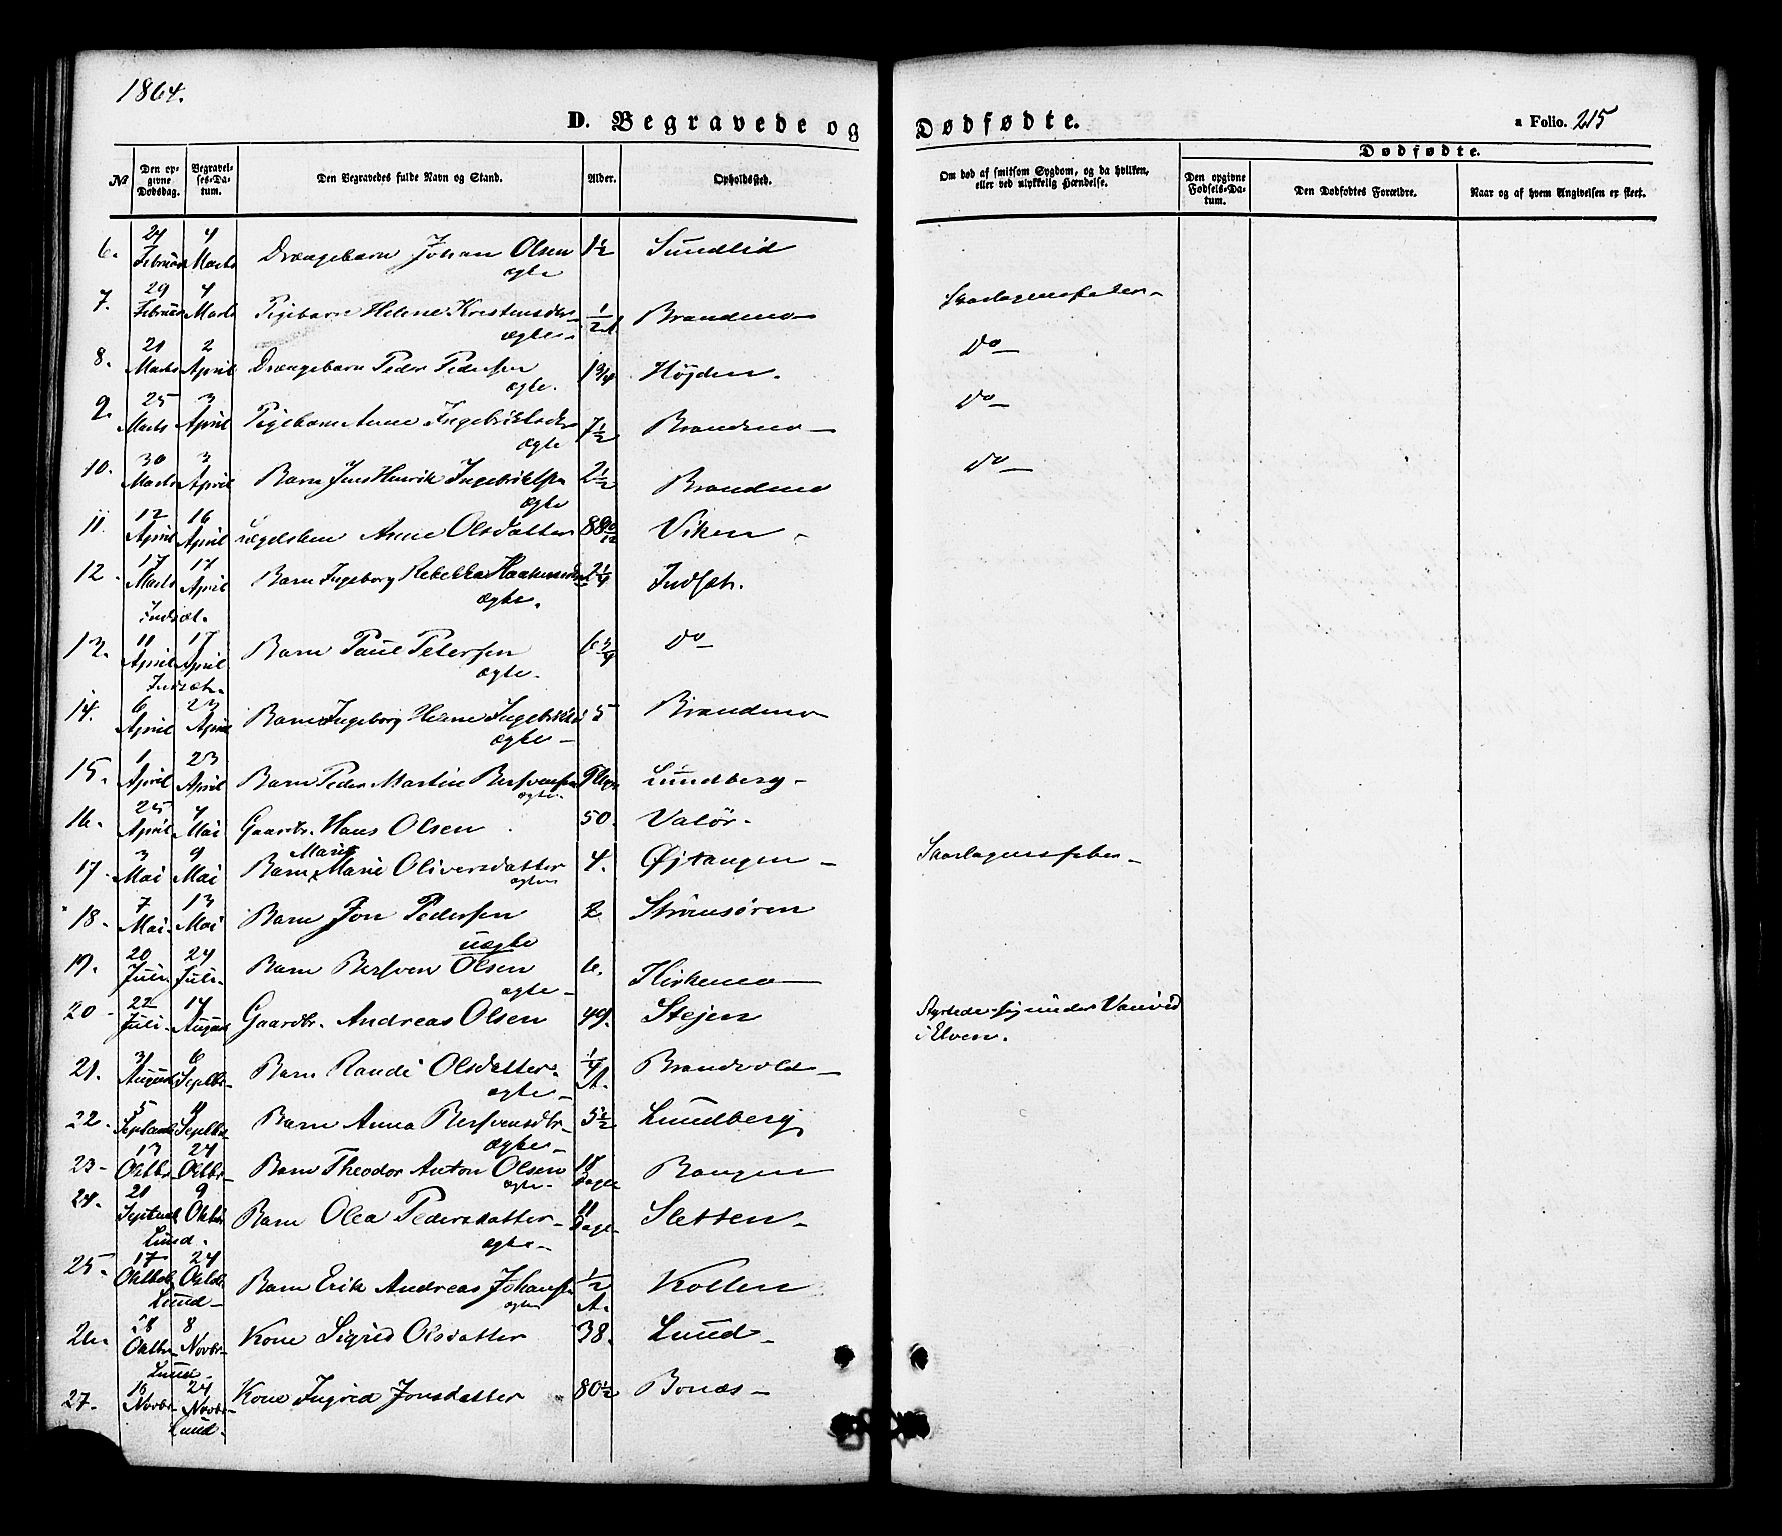 1864.
D. Begravede og Dødfødte.
a Folio. 215
Dødfødte.
№ Den opgivne Dødsdag. Begravelses-Datum. Den Begravedes fulde Navn og Stand. Alder. Opholdssted. Om død af smitsom Sygdom, og da hvilken, eller ved ulykkelig Hændelse. Den opgivne Fødsels-Datum. Den Dødfødtes Forældre. Naar og af hvem Angivelsen er skeet.
6. Februar 4 Marts Drængebarn Johan Olsen 1½ Sundlid
ægte
7. 29 Februar 4 Marts Pigebarn Helene Kristensdr ½ A Brandmo Skarlagensfeber
ægte
8. 21 Marts 2 April Drængebarn Peder Pedersen 1¾ Højden. do
ægte.
9. 25 Marts 3 April Pigebarn Anne 7½ Brandmo do
ægte
10. 30 Marts 3 April Barn Jens Henrik Ingebrigtsen 2½ Brandmo do
ægte
11. 12 April 16 April Anne Olsdatter 88 10/12 Viken
12. 17 Marts 17 April Barn Ingeborg Rebekka 2¼ Indset.
Indset. ægte.
13. 11 April 17 April Barn Paul Petersen 6¾ do
Indset. ægte.
14. 6 April 23 April Barn Ingeborg 5 Brandmo
ægte
15. 1 April 23 April Barn Peder Martin Bersvensen Lundberg
ægte
16. 25 April 4 Mai Gaardbr. Hans Olsen 50. Valør.
17. 3 Mai 9 Mai Barn Marie Oliversdatter 4. Øjtangen Skarlagensfeber
ægte
18. 7 Mai 13 Mai Barn Jon Pedersen 2 Strømsøren
uægte
19. 20 Juli 24 Juli Barn Bersven Olsen 6. Kirkemo
ægte
20 22 Juli 14 August Gaardbr. Andreas Olsen 49. Stejen Styrtede sig under Vanvid
i Elven.
21. 31 August 6 Septbr Barn Randi Olsdatter. ¼ A. Brandvold
ægte
22. 5 Septbr Barn Anna Bersvensdtr 5½ Lundberg
ægte
23 13 Oktbr 24 Oktbr Barn Theodor Anton Olsen 18 Dage
ægte
24. 21 9 Oktbr Barn Olea Pedersdatter 11 Dage Sletten
Lund. ægte
25. 17 Oktbr 24 Oktbr Barn Erik Andreas Johansen ½ A. Kollen
Lund ægte
26. 28 Oktbr 8 Novbr Kone Sigrid Olsdatter 38. Lund
Lund
27. 18 Novbr 24 Novbr Kone Ingrid Jonsdatter 80½ Bonæs
Lund.